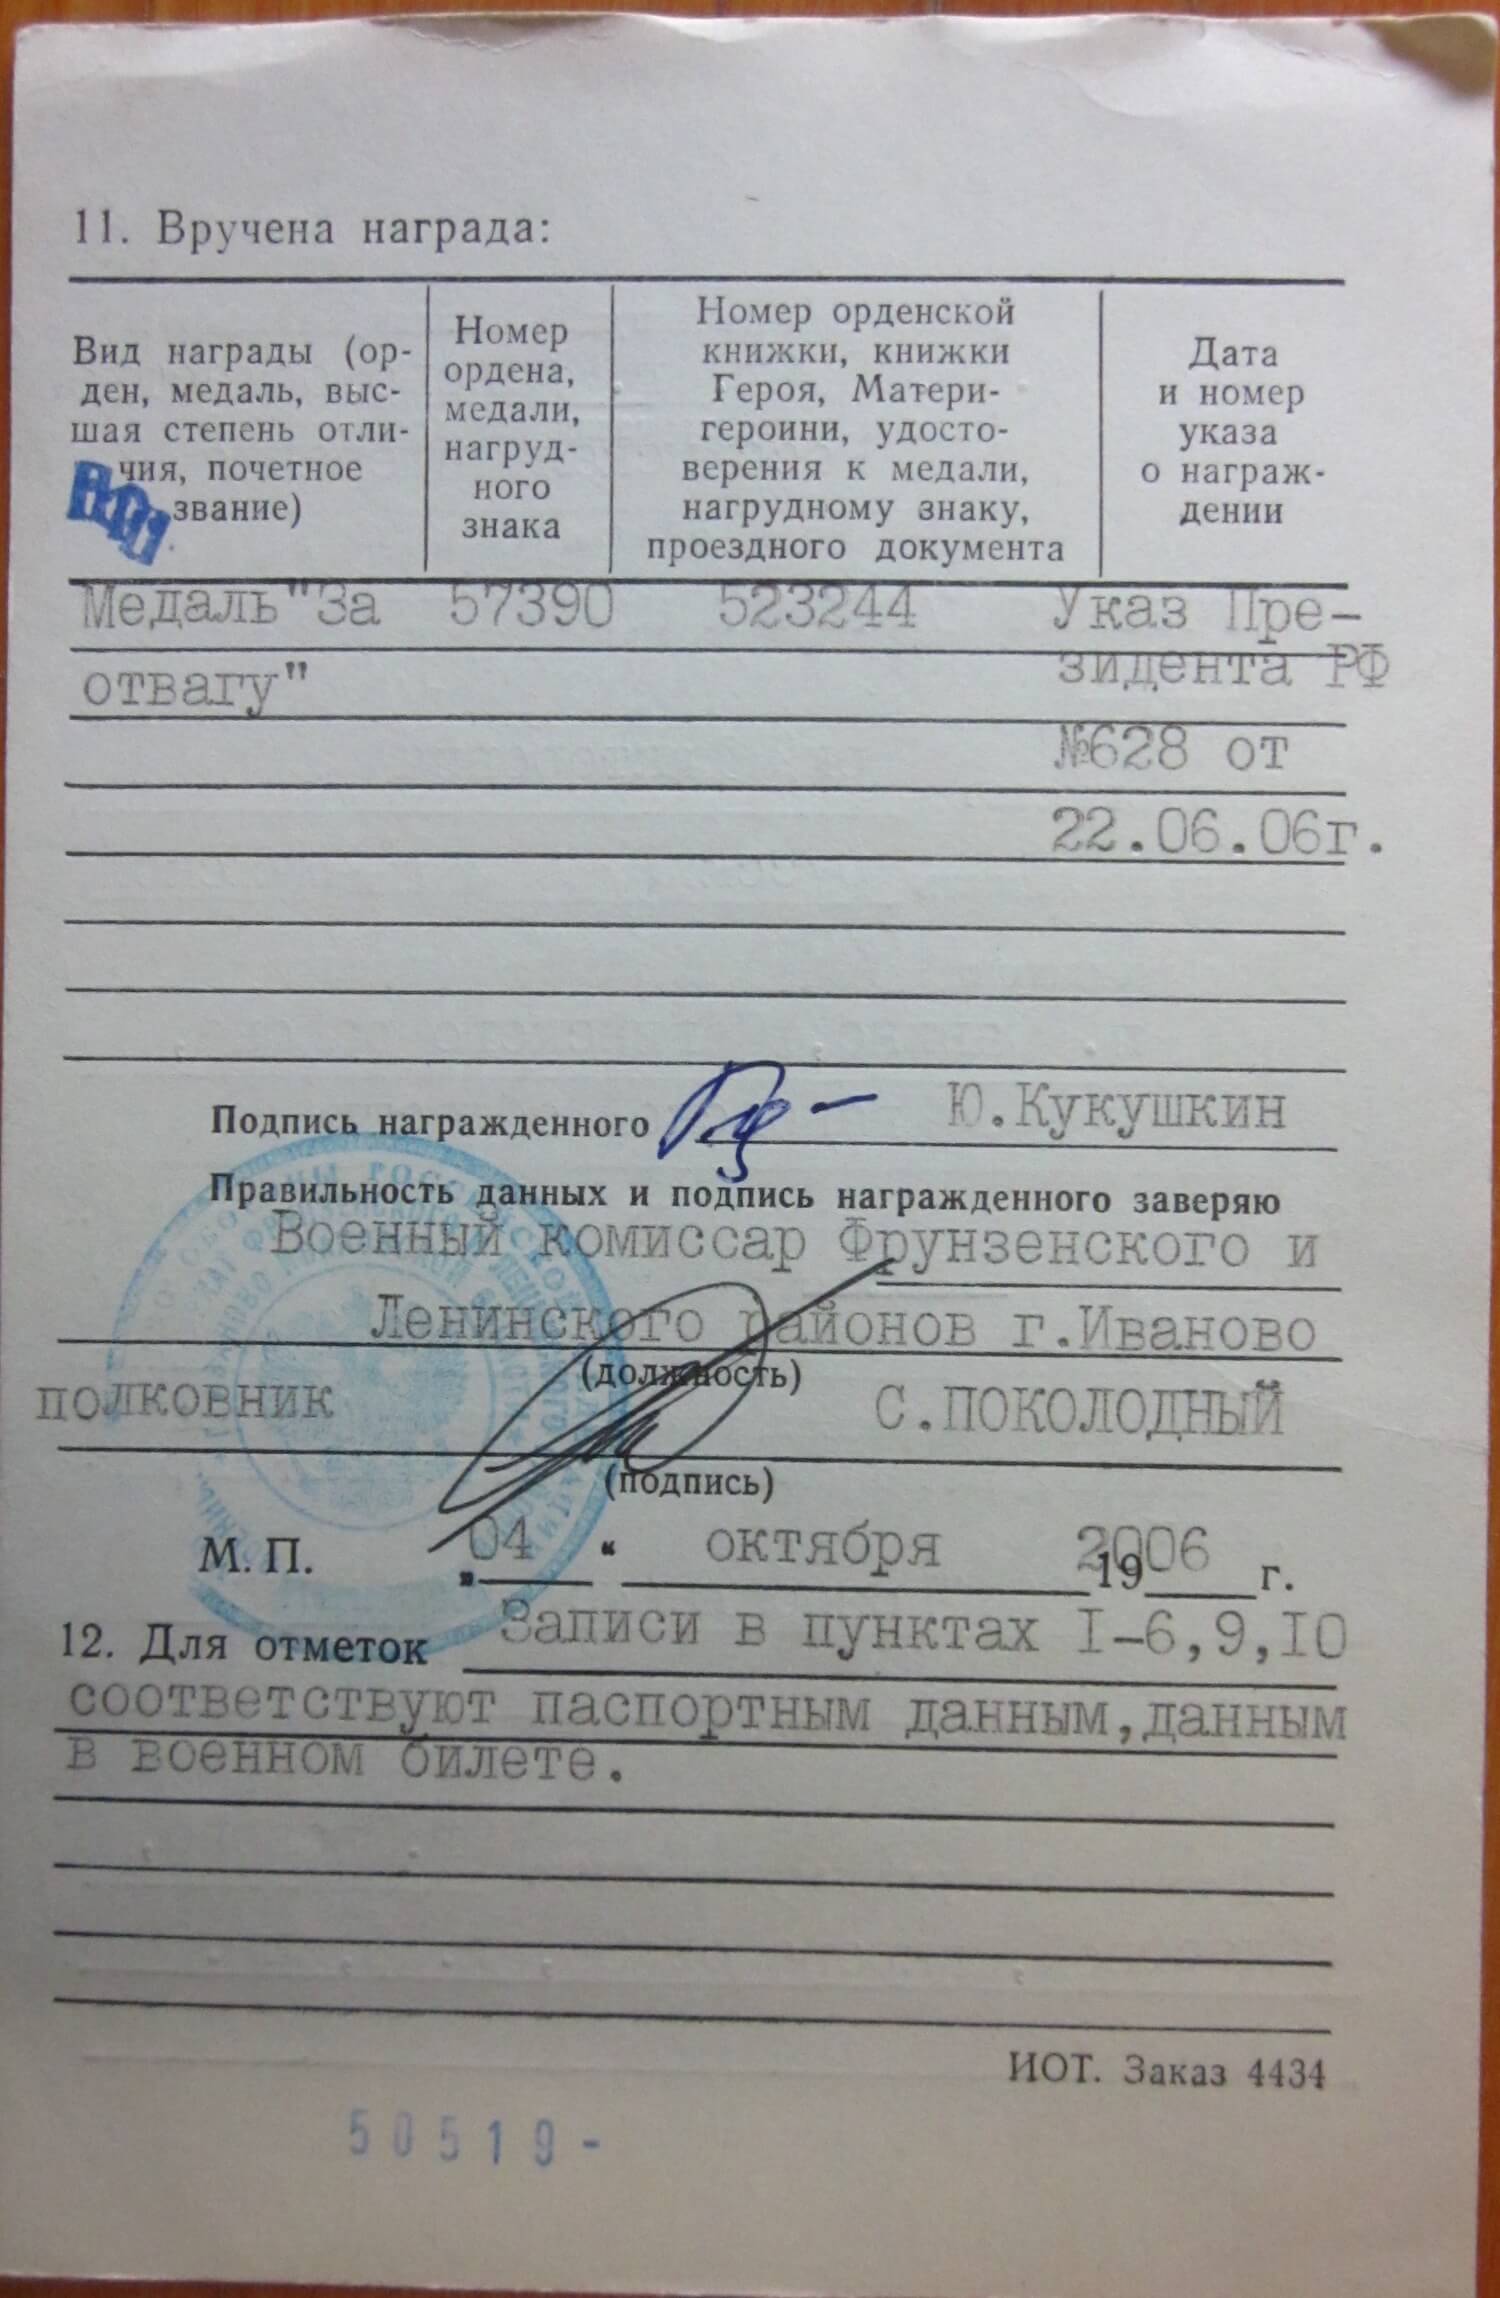 11. Вручена награда:
Вид награды (ор-
ден, медаль, выс-
шая степень отли-
чия, почетное
звание)
Номер
ордена,
медали,
нагруд-
ного
знака
Номер орденской
книжки, книжки
Героя, Матери-
героини, удосто-
верения к медали,
нагрудному знаку,
проездного документа
Дата
и номер
указа
о награж-
дении
Медаль "За 57390 523244 Указ Пре-
отвагу" зидента РФ
№628 от
22.06.06г.
Подпись награжденного Ю.Кукушкин
Правильность данных и подпись награжденного заверяю
Военный комиссар Фрунзенского и
Ленинского районов г.Иваново
(должность)
полковник С.ПОКОЛОДНЫЙ
(подпись)
М. П. „04“ октября 2006 19 г.
12. Для отметок Записи в пунктах I-6,9,I0
соответствуют паспортным данным,данным
в военном билете.
ИОТ. Заказ 4434
50519-